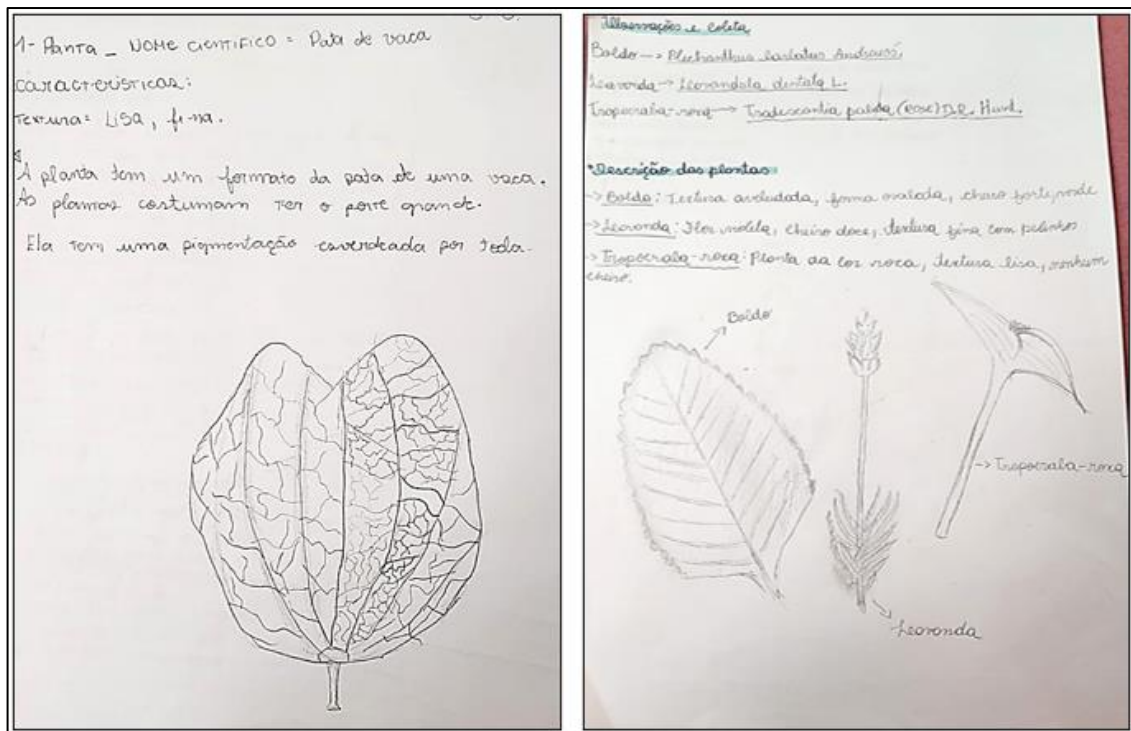 1- Planta _ NOME CIENTIFICO = Pata de vaca
características:
Textura= LISA, fina.
A planta tem um formato da pata de uma vaca.
As plantas costumam ter o porte grande.
Ela tem uma pigmentação esverdeada por toda.
e coleta
Boldo → Plectranthus barbatus
→ dentata L.
→ Tradescantia (rose) D.R. Hunt.
*Descrição das plantas
→ Boldo: Textura aveludada, forma ovalada, cheiro forte,
→ Lavanda: Flor violeta, cheiro doce, textura fina com pelinhos
→ Trapoeraba-roxa: Planta da cor roxa, textura lisa, nenhum
cheiro.
Boldo
→ Trapoeraba-roxa
Lavanda